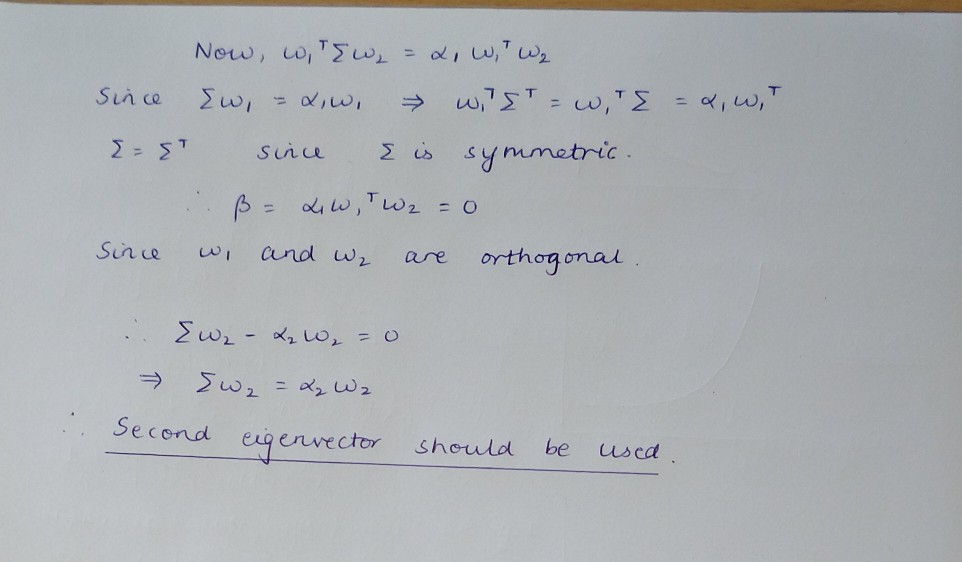 Now, ω₁ᵀΣω₂ = α₁ ω₁ᵀω₂
Since Σω₁ = α₁ω₁ ⇒ ω₁ᵀΣᵀ = ω₁ᵀΣ = α₁ω₁ᵀ
Σ = Σᵀ since Σ is symmetric.
∴ β = α₁ω₁ᵀω₂ = 0
Since ω₁ and ω₂ are orthogonal.
∴ Σω₂ - α₂ω₂ = 0
⇒ Σω₂ = α₂ω₂
∴ Second eigenvector should be used.